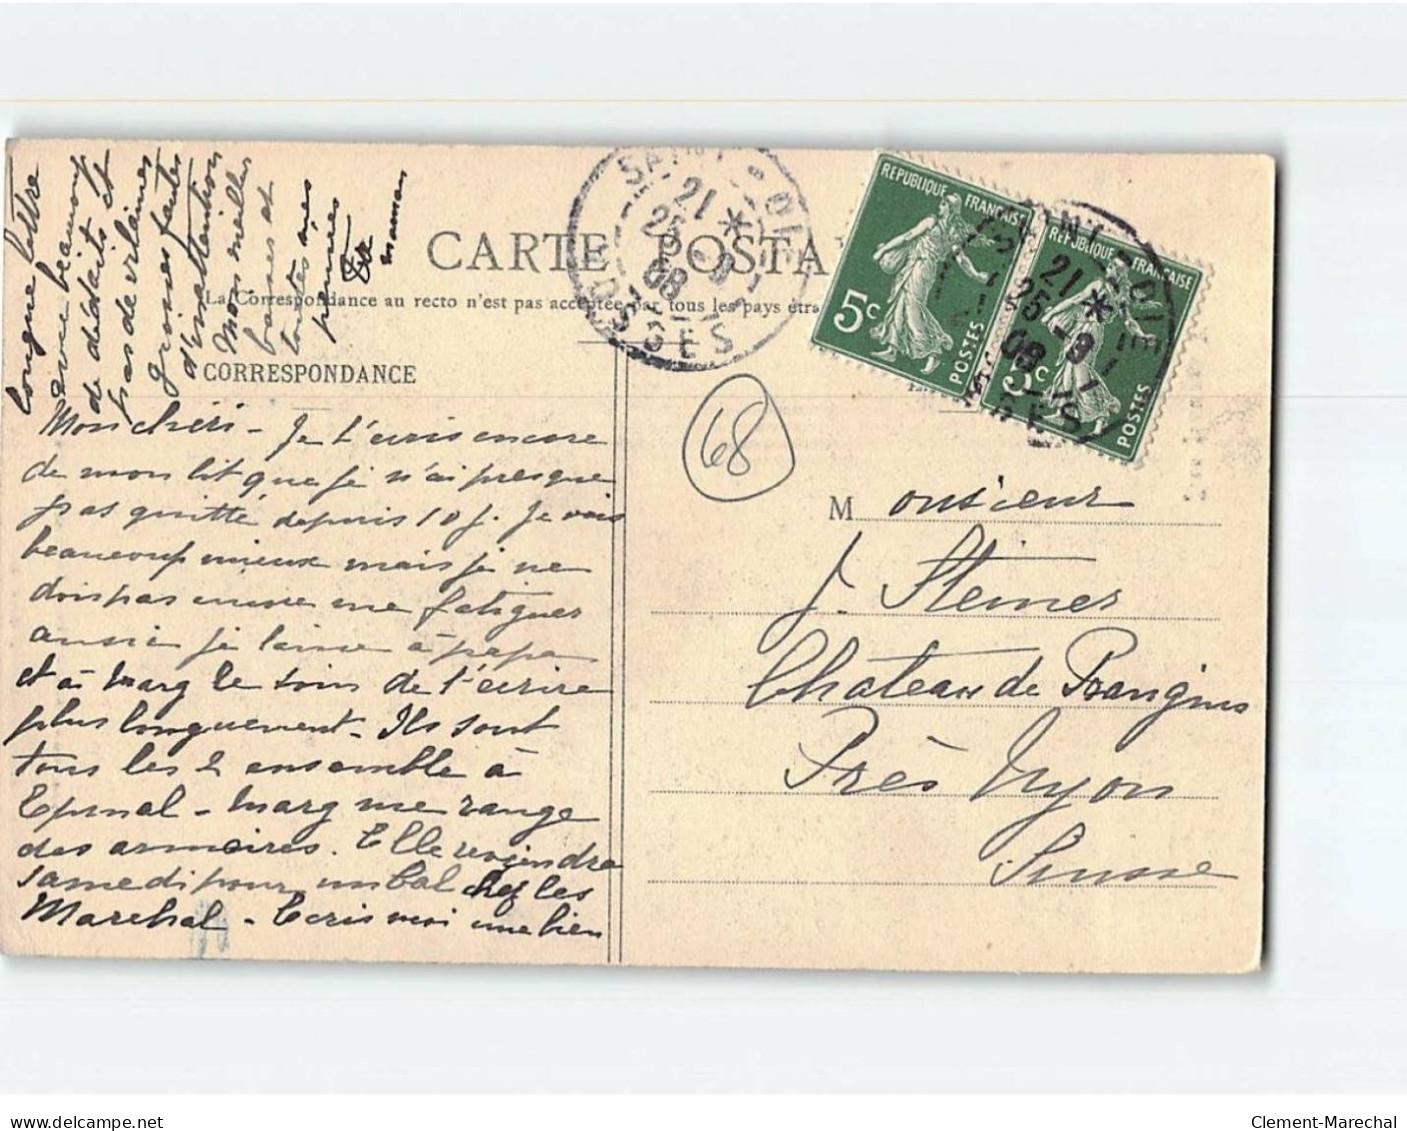 CARTE POSTA
La Correspondance au recto n'est pas acceptée par tous les pays étra
CORRESPONDANCE
SAINT-DIÉ
21 *
25 - 9
08
VOSGES
REPUBLIQUE FRANÇAISE
5c
POSTES
REPUBLIQUE FRANÇAISE
5c
POSTES
SAINT-DIÉ
21 *
25 - 9
08
VOSGES
68
Mon chéri - Je t'écris encore
de mon lit que je n'ai presque
pas quitté depuis 10 j. Je vais
beaucoup mieux mais je ne
dois pas encore me fatiguer
aussi je laisse à papa
et à Marg le soin de t'écrire
plus longuement - Ils sont
tous les 2 ensemble à
Epinal - Marg me range
des armoires. Elle reviendra
samedi pour un bal chez les
Marchal - Ecris moi une bien
longue lettre
avec beaucoup
de détails et
pas de vilaines
grosses fautes
d'inattention
Mon meilleur
baiser et
toutes mes
pensées
Ta
maman
Monsieur
J. Steiner
Château de Prangins
Près Nyon
Suisse
www.delcampe.net
Clement-Marechal